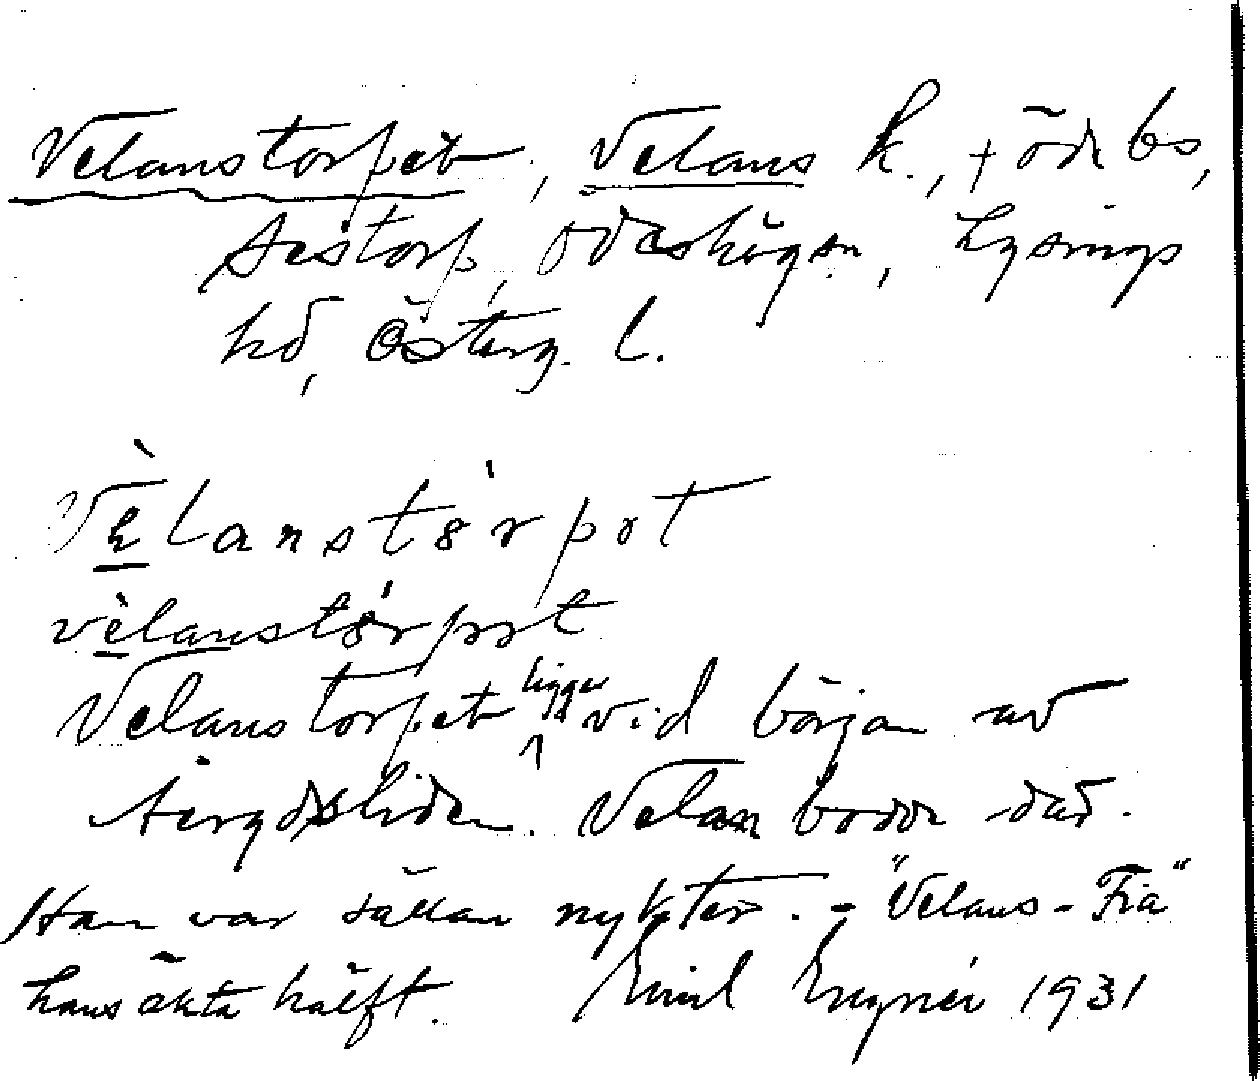 Velanstorpet, Velans k., + öde bs,
Sestorp, Ödeshögsn, Lysings
hd, Österg. l.
Velanstorpet
velanstorpet
Velanstorpet ligger vid början av
. Velan bodde där.
Han var sällan nykter. - "Velans-Fia"
hans äkta hälft. Emil 1931